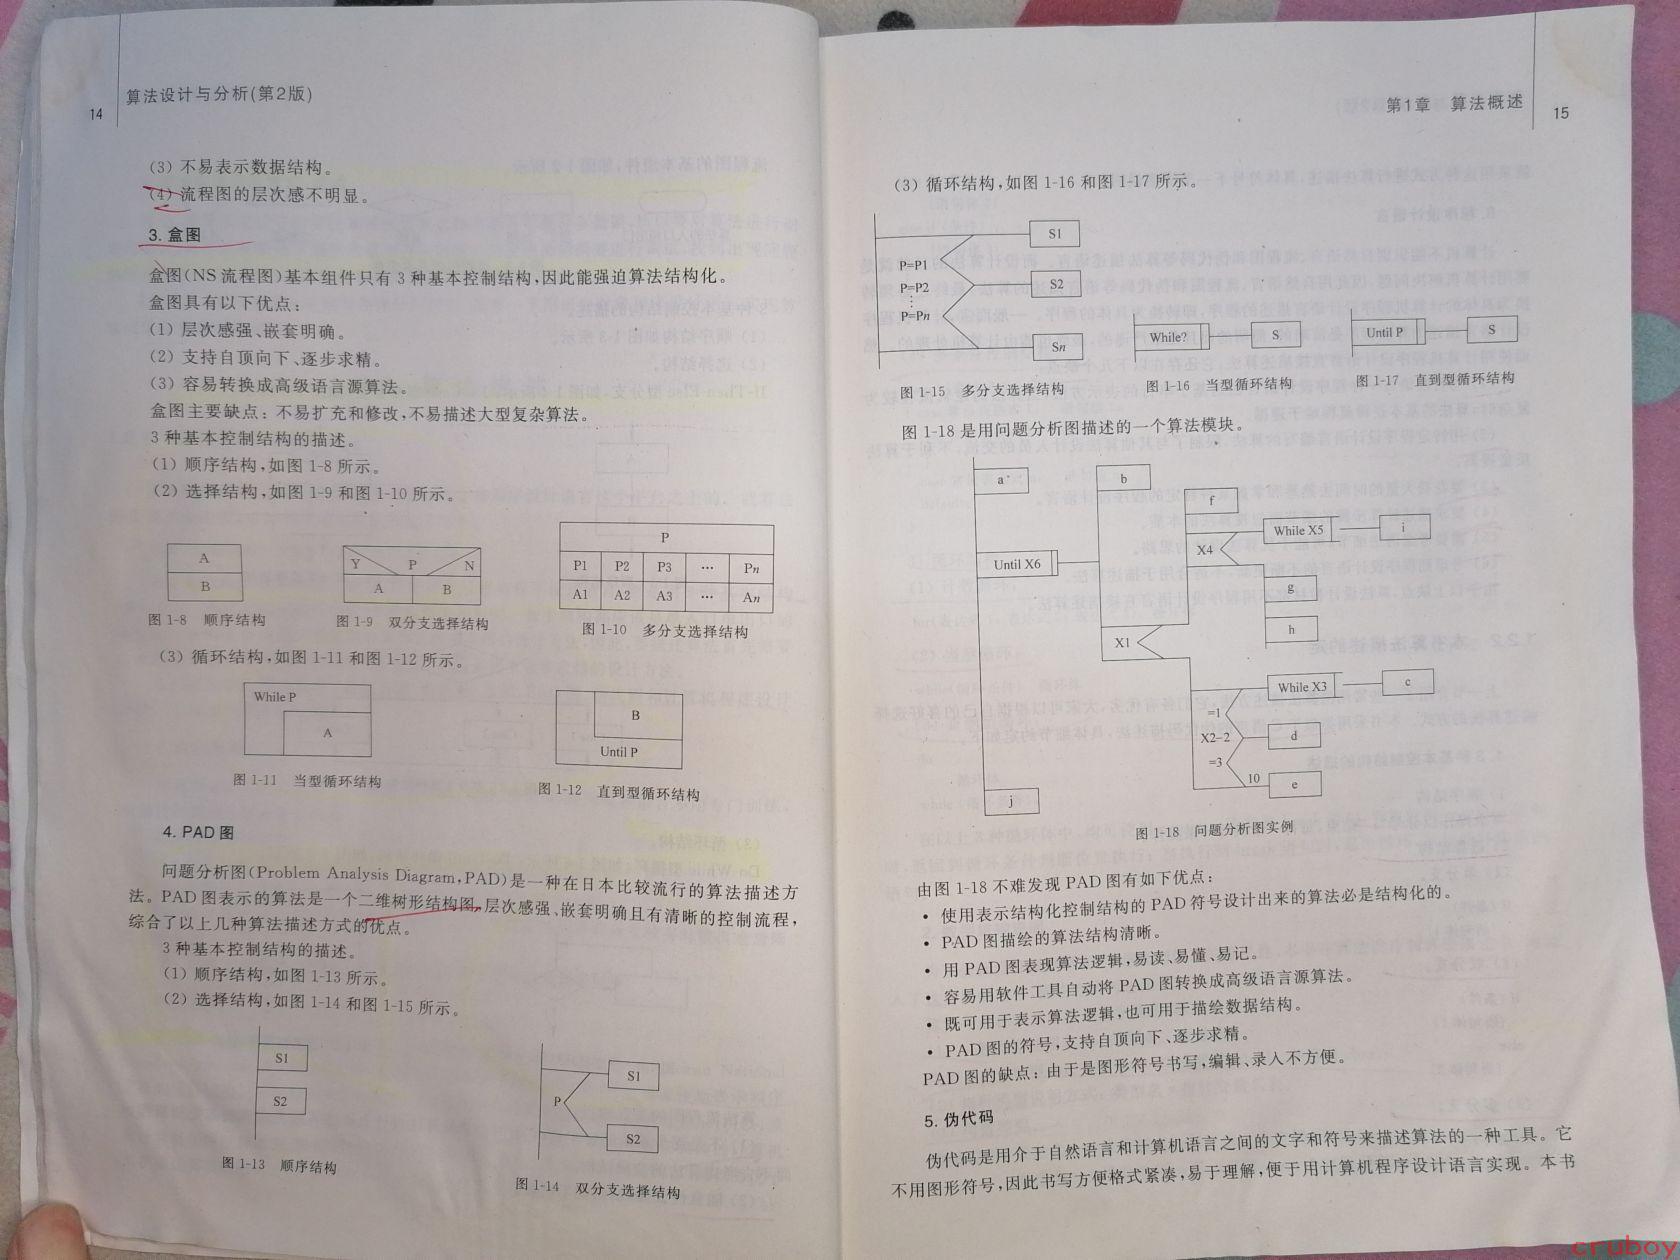 14
算法设计与分析(第2版)
(3) 不易表示数据结构。
(4) 流程图的层次感不明显。
3. 盒图
盒图(NS 流程图)基本组件只有 3 种基本控制结构,因此能强迫算法结构化。
盒图具有以下优点:
(1) 层次感强、嵌套明确。
(2) 支持自顶向下、逐步求精。
(3) 容易转换成高级语言源算法。
盒图主要缺点: 不易扩充和修改,不易描述大型复杂算法。
3 种基本控制结构的描述。
(1) 顺序结构,如图 1-8 所示。
(2) 选择结构,如图 1-9 和图 1-10 所示。
A
B
图 1-8 顺序结构
Y P N
A B
图 1-9 双分支选择结构
P
P1 P2 P3 … Pn
A1 A2 A3 … An
图 1-10 多分支选择结构
(3) 循环结构,如图 1-11 和图 1-12 所示。
While P
A
图 1-11 当型循环结构
B
Until P
图 1-12 直到型循环结构
4. PAD 图
问题分析图(Problem Analysis Diagram,PAD)是一种在日本比较流行的算法描述方
法。PAD 图表示的算法是一个二维树形结构图,层次感强、嵌套明确且有清晰的控制流程,
综合了以上几种算法描述方式的优点。
3 种基本控制结构的描述。
(1) 顺序结构,如图 1-13 所示。
(2) 选择结构,如图 1-14 和图 1-15 所示。
S1
S2
图 1-13 顺序结构
P
S1
S2
图 1-14 双分支选择结构
第1章 算法概述
15
(3) 循环结构,如图 1-16 和图 1-17 所示。
P=P1
P=P2
⋮
P=Pn
S1
S2
Sn
图 1-15 多分支选择结构
While? S
图 1-16 当型循环结构
Until P S
图 1-17 直到型循环结构
图 1-18 是用问题分析图描述的一个算法模块。
a
b
f
X4
While X5
i
Until X6
g
h
X1
While X3
c
=1
X2-2
d
=3
10
e
j
图 1-18 问题分析图实例
由图 1-18 不难发现 PAD 图有如下优点:
• 使用表示结构化控制结构的 PAD 符号设计出来的算法必是结构化的。
• PAD 图描绘的算法结构清晰。
• 用 PAD 图表现算法逻辑,易读、易懂、易记。
• 容易用软件工具自动将 PAD 图转换成高级语言源算法。
• 既可用于表示算法逻辑,也可用于描绘数据结构。
• PAD 图的符号,支持自顶向下、逐步求精。
PAD 图的缺点: 由于是图形符号书写,编辑、录入不方便。
5. 伪代码
伪代码是用介于自然语言和计算机语言之间的文字和符号来描述算法的一种工具。它
不用图形符号,因此书写方便格式紧凑,易于理解,便于用计算机程序设计语言实现。本书
cruboy